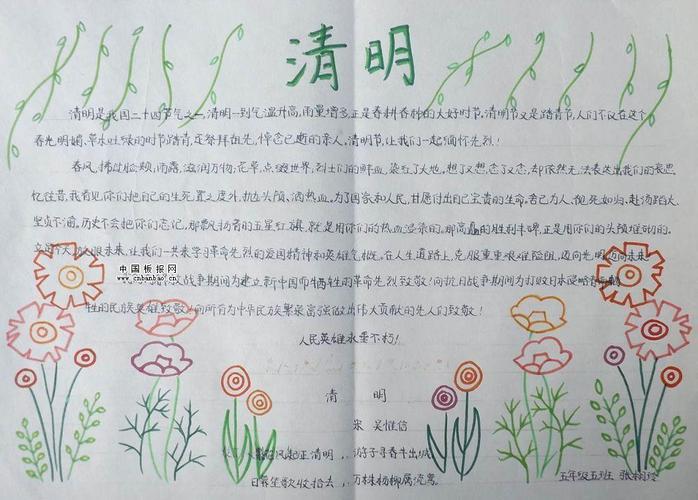 清明
清明是我国二十四节气之一,清明一到气温升高,雨量增多,正是春耕春种的大好时节,清明节又是踏青节,人们不仅在这个
春光明媚、草木吐绿的时节踏青,还祭拜祖先,悼念已逝的亲人,清明节,让我们一起缅怀先烈!
春风,拂过脸颊,雨露,滋润万物;花草,点缀世界,烈士们的鲜血,染红了大地。想了又想,念了又念,却依然无法表达出我们的哀思
忆往昔,我看见你们把自己的生死置之度外,抛头颅、洒热血。为了国家和人民,甘愿付出自己宝贵的生命。舍己为人、视死如归、赴汤蹈火、
坚贞不渝。历史不会把你们忘记,那飘扬着的五星红旗,就是用你们的热血染杂的,那高矗的胜利丰碑,正是用你们的头颅堆砌的。
放眼未来,让我们一共来学习革命先烈的爱国精神和英雄气概,在人生道路上,克服重重艰难险阻,迈向光明迈向未来
战争期间为建立新中国而牺牲的革命先烈致敬!向抗日战争期间为打败日本侵略
牲的民族英雄致敬!向所有为中华民族繁荣富强做出伟大贡献的先人们致敬!
人民英雄永垂不朽!
中国板报网
www.cnbanbao.cn
清 明
宋 吴惟信
风起正清明,游子寻春半出城
日暮笙歌收拾去,万株杨柳属流莺
五年级五班 张